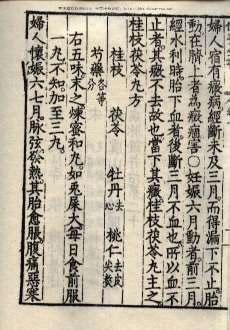 婦人宿有癥病經斷未及三月而得漏下不止胎
動在臍上者為癥痼害○妊娠六月動者前三月
經水利時胎下血者後斷三月不血也所以血不
止者其癥不去故也當下其癥桂枝茯苓丸主之
桂枝茯苓丸方
桂枝 茯苓 牡丹去心 桃仁去皮尖熬
芍藥各等分
右五味末之煉蜜和丸如兎屎大每日食前服
一丸不知加至三丸
婦人懷娠六七月脉弦發熱其胎愈脹腹痛惡寒